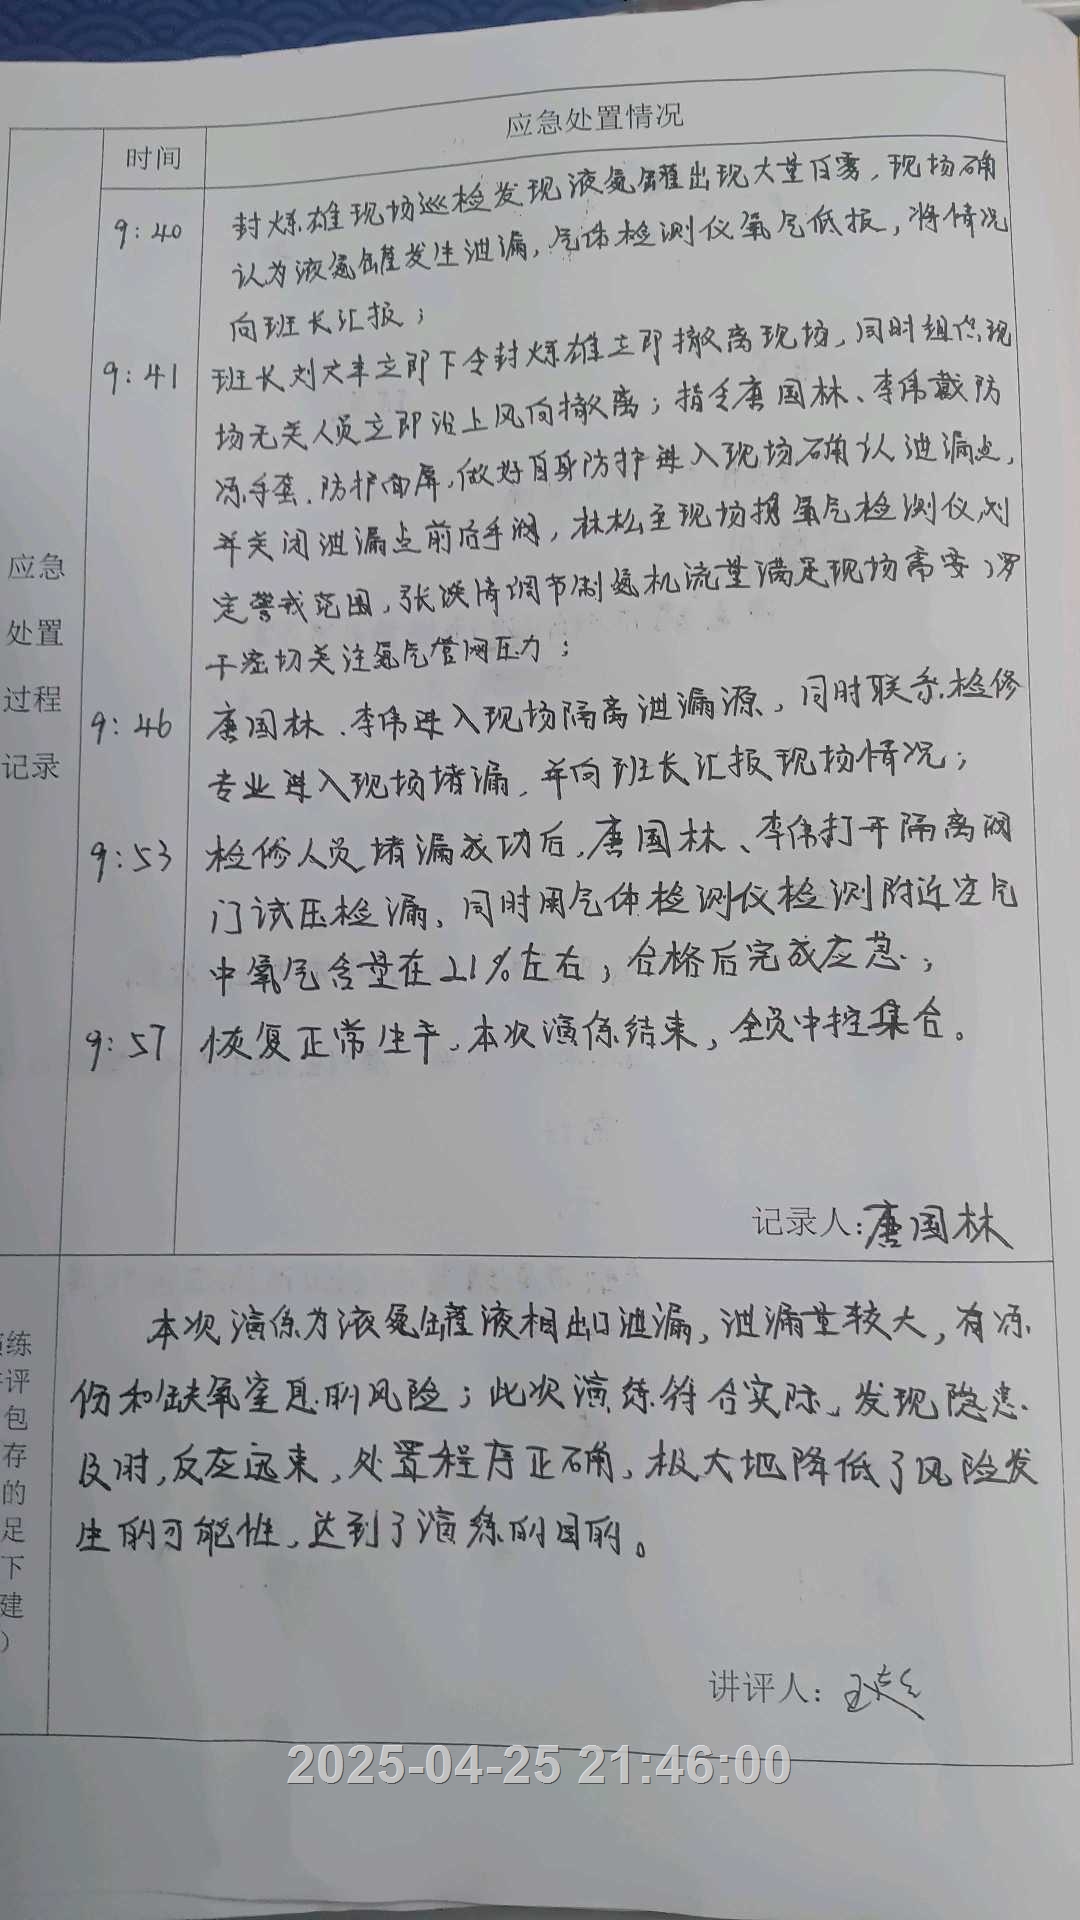 应急处置情况
时间
9:40
封炼雄现场巡检发现液氮罐出现大量白雾，现场确
认为液氮罐发生泄漏，气体检测仪氧气低报，将情况
向班长汇报；
9:41
班长刘文丰立即下令封炼雄立即撤离现场，同时组织现
场无关人员立即沿上风向撤离；指令唐国林、李伟戴防
冻手套、防护面屏，做好自身防护进入现场确认泄漏点，
并关闭泄漏点前后手阀，林松至现场携氧气检测仪划
定警戒范围，张 调节制氮机流量满足现场需要，罗
干密切关注氮气管网压力；
9:46
唐国林、李伟进入现场隔离泄漏源，同时联系检修
专业进入现场堵漏，并向班长汇报现场情况；
9:53
检修人员堵漏成功后，唐国林、李伟打开隔离阀
门试压检漏，同时用气体检测仪检测附近空气
中氧气含量在21%左右，合格后完成应急；
9:57
恢复正常生产，本次演练结束，全员中控集合。
应急
处置
过程
记录
记录人：唐国林
本次演练为液氮罐液相出口泄漏，泄漏量较大，有冻
伤和缺氧窒息的风险；此次演练符合实际，发现隐患
及时，反应迅速，处置程序正确，极大地降低了风险发
生的可能性，达到了演练的目的。
练
评
包
存
的
足
下
建
）
讲评人：
2025-04-25 21:46:00